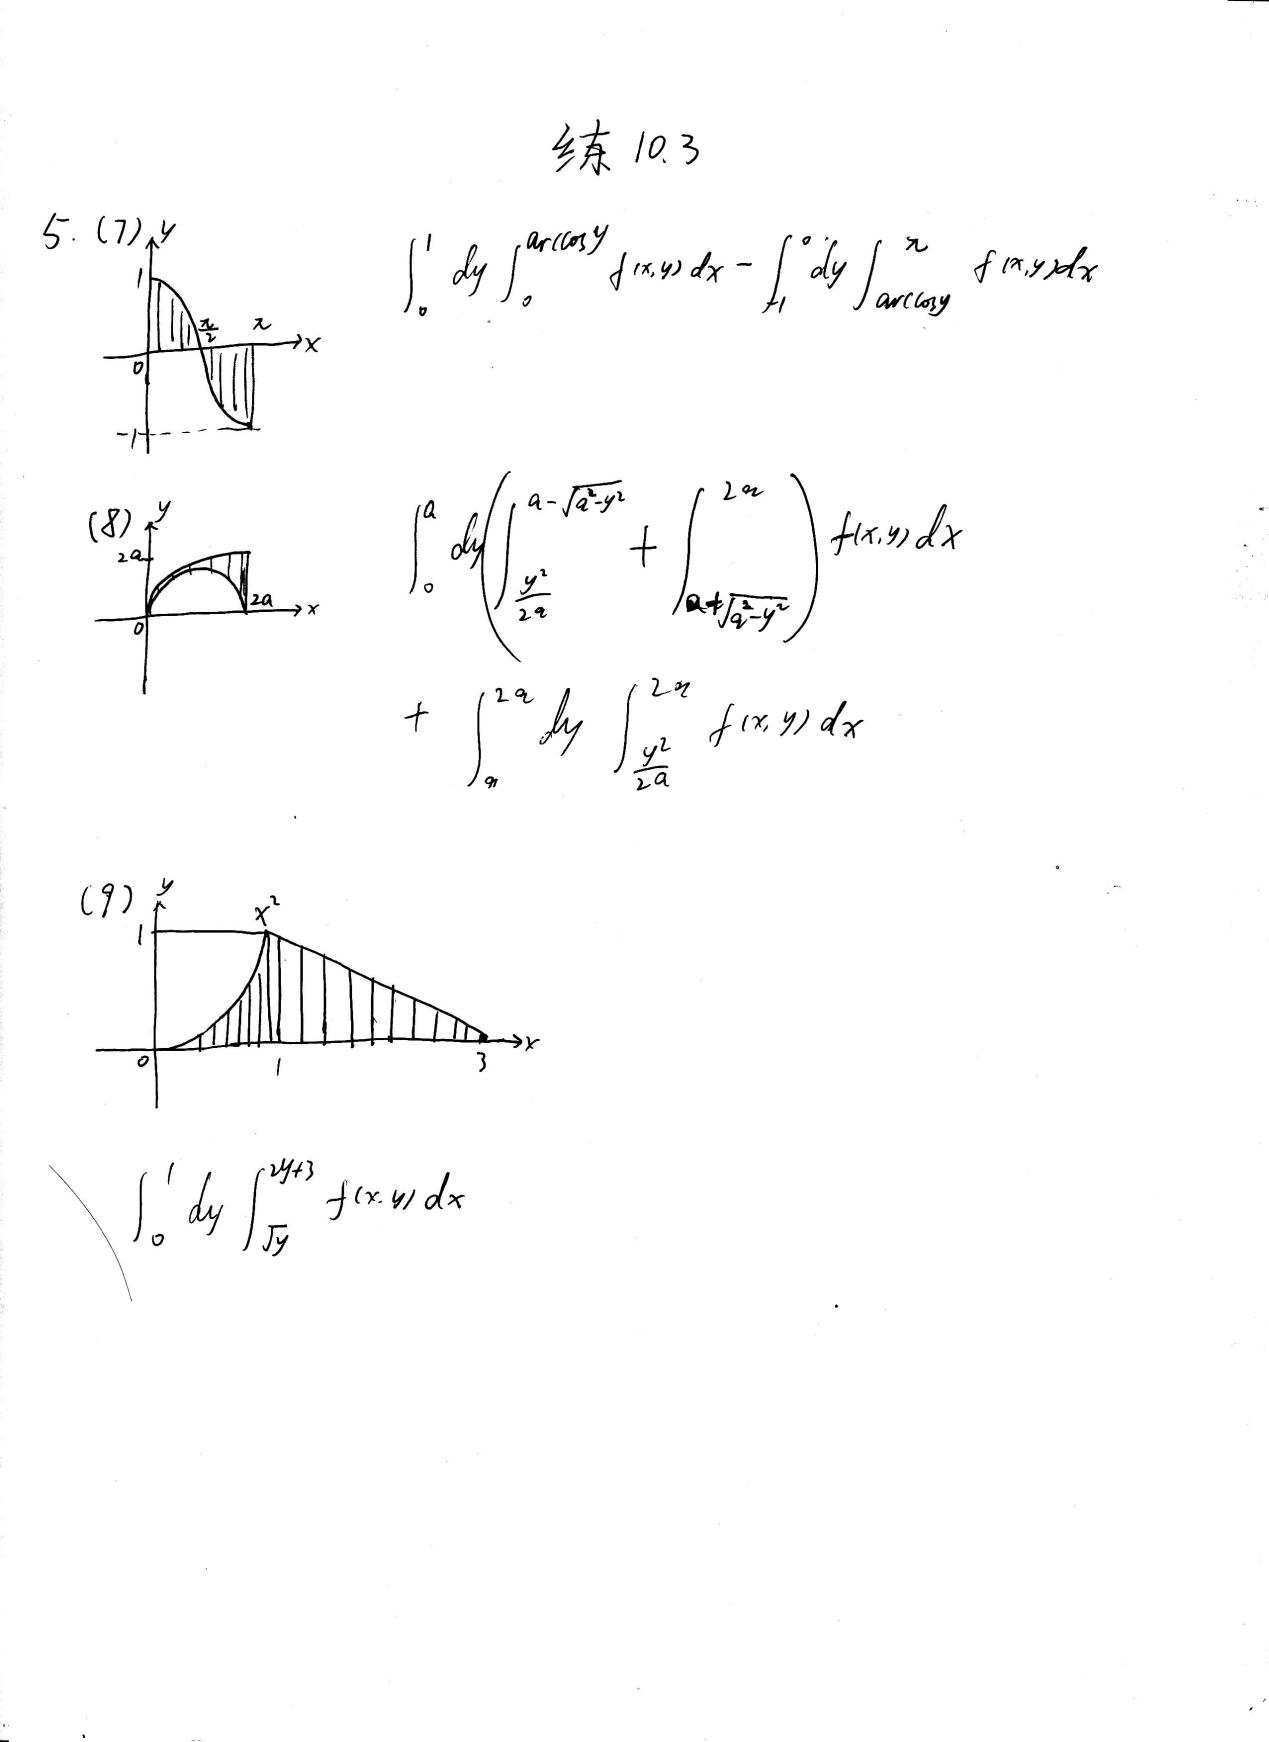 练 10.3
5. (7) y 1 0 π/2 π x -1
∫₀¹ dy ∫₀^{arccos y} f(x,y) dx − ∫₋₁⁰ dy ∫_{arccos y}^{π} f(x,y) dx
(8) y 2a 0 2a x
∫₀^a dy ( ∫_{y²/2a}^{a−√(a²−y²)} + ∫_{a+√(a²−y²)}^{2a} ) f(x,y) dx
+ ∫_a^{2a} dy ∫_{y²/2a}^{2a} f(x,y) dx
(9) y x² 1 0 1 3 x
∫₀¹ dy ∫_{√y}^{2y+3} f(x,y) dx